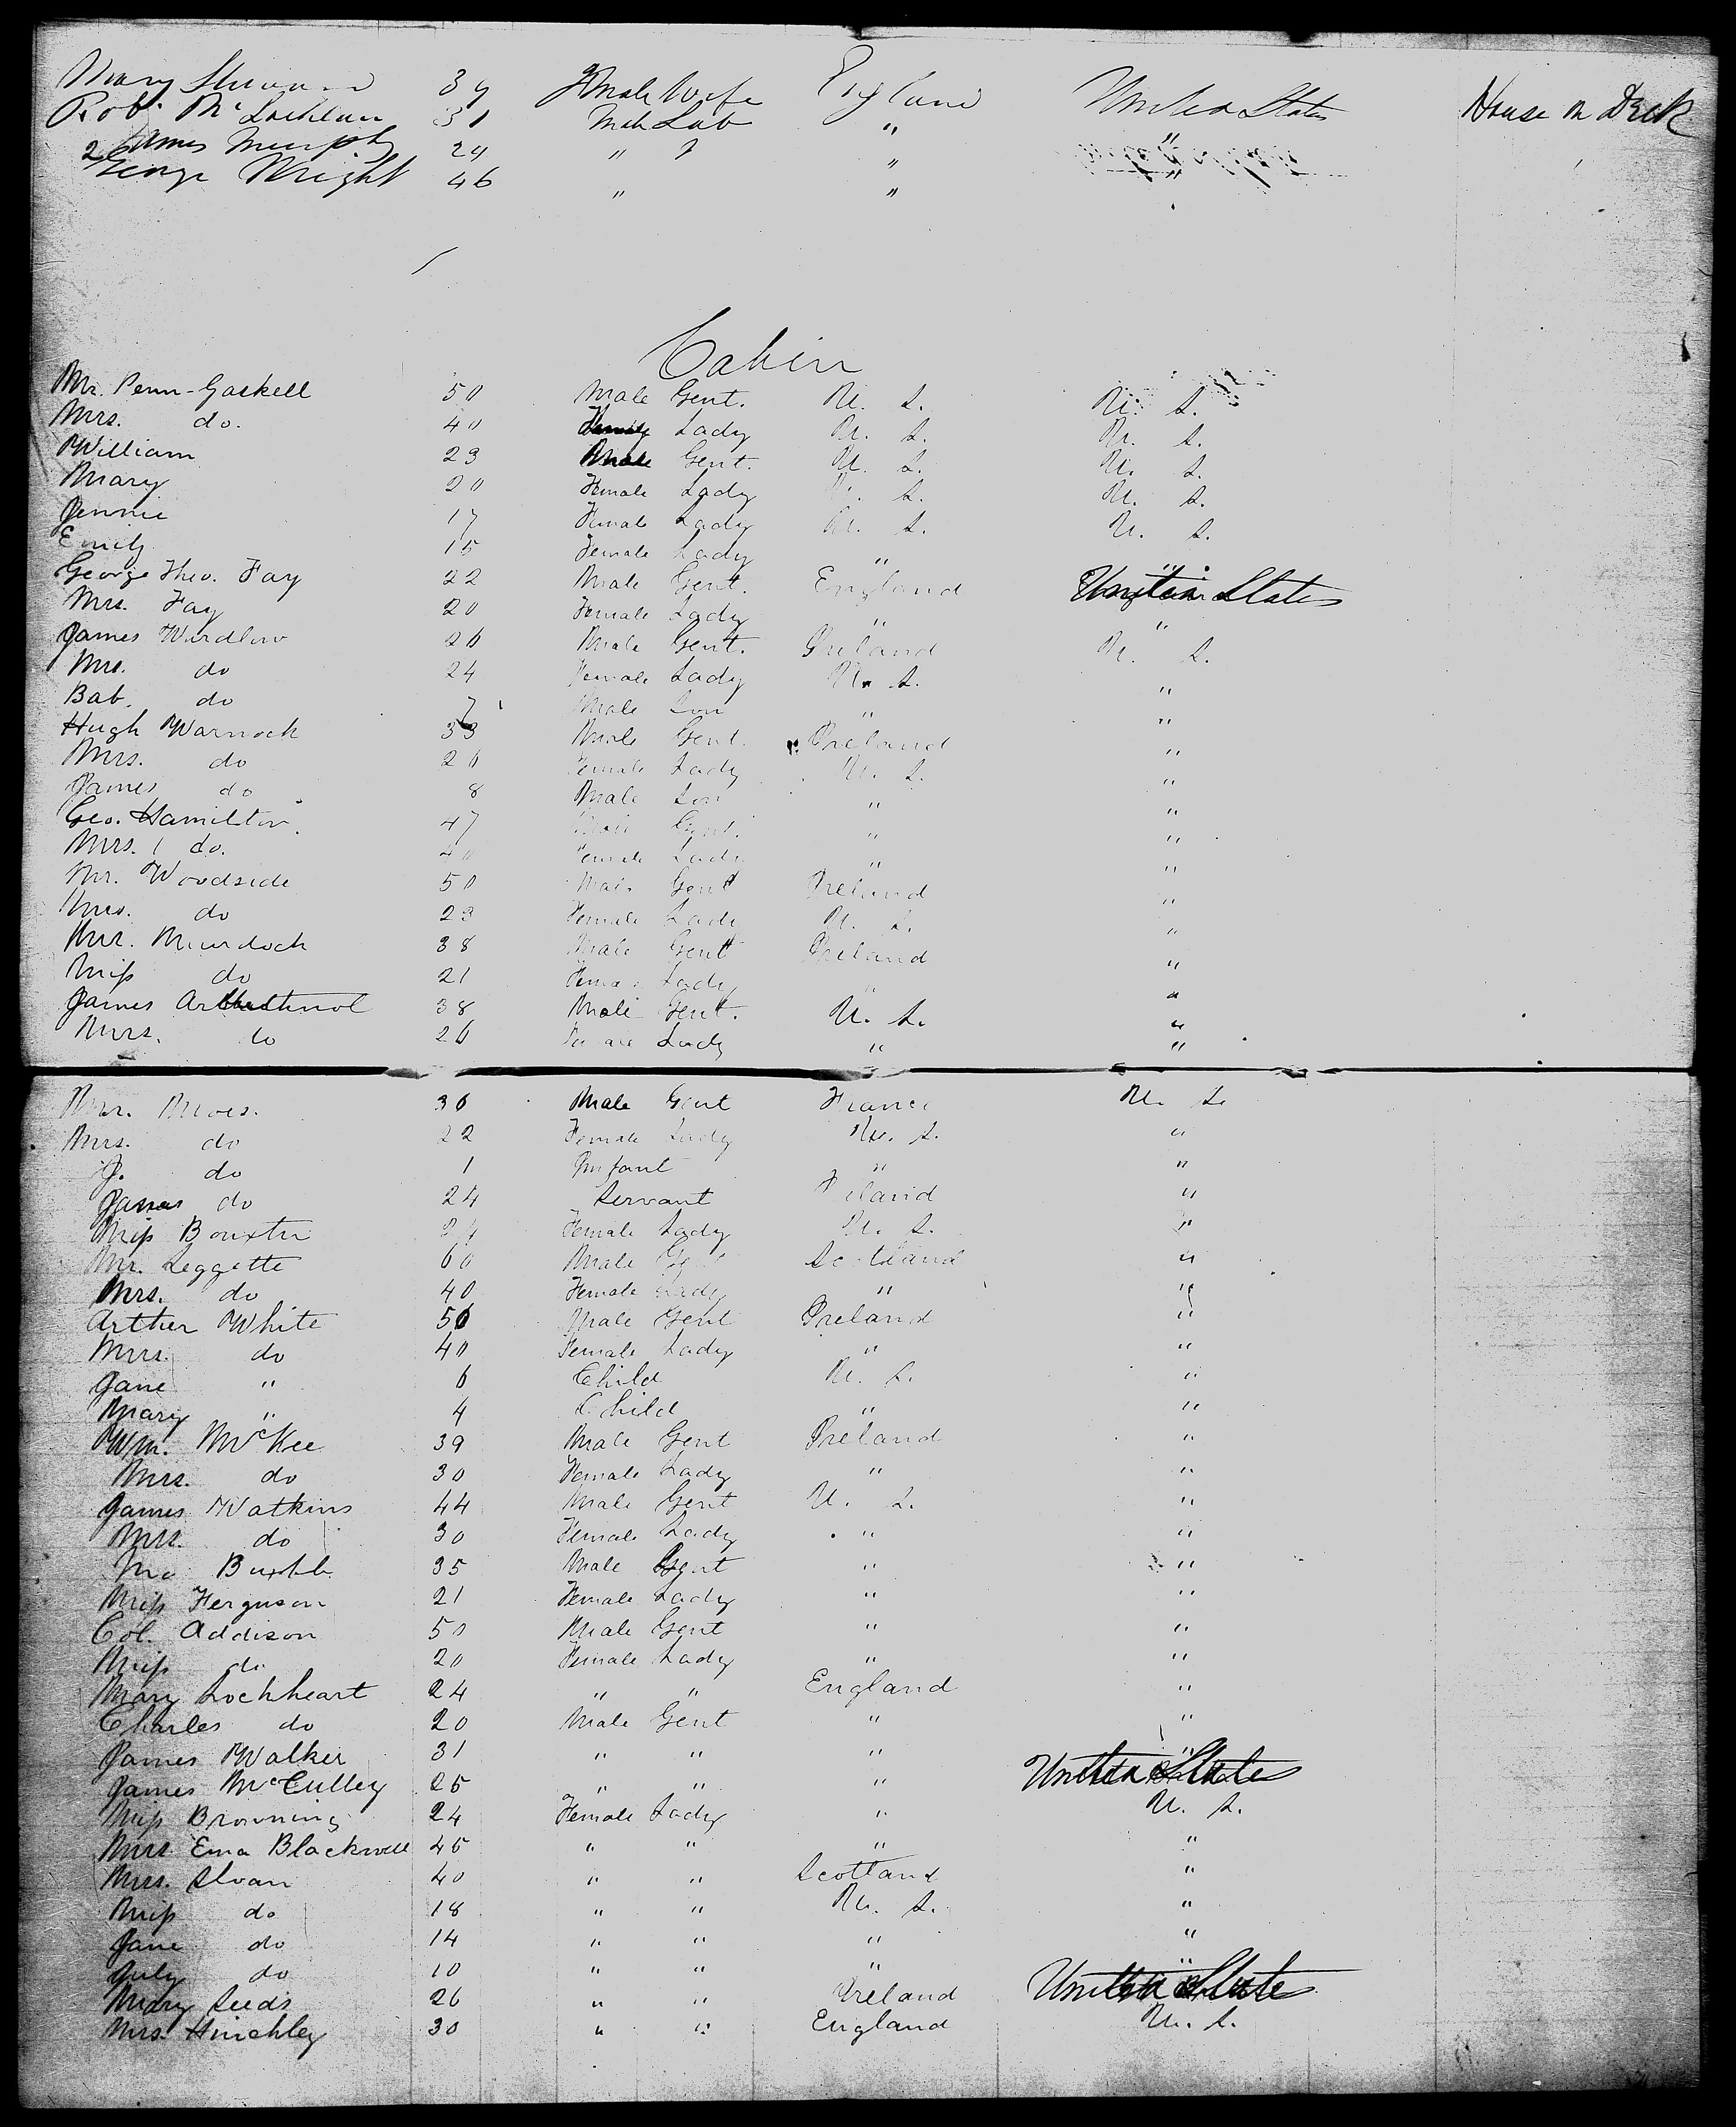 Mary 39 Female Wife England United States House on Deck
Rob. McLachlan 31 Male Lab "
James Murphy 24 " " "
George Wright 46 " " "
Cabin
Mr. Penn-Gaskell 50 Male Gent. U. S. U. S.
Mrs. do. 40 Lady U. S. U. S.
William 23 Male Gent. U. S. U. S.
Mary 20 Female Lady U. S. U. S.
Jennie 17 Female Lady U. S. U. S.
Emily 15 Female Lady " "
George Theo. Fay 22 Male Gent. England United States
Mrs. Fay 20 Female Lady " "
James Wardlow 26 Male Gent. Ireland U. S.
Mrs. do 24 Female Lady U. S. "
Bab. do 7 Male Son " "
Hugh Warnock 33 Male Gent. Ireland "
Mrs. do 26 Female Lady U. S. "
James do 8 Male Son " "
Geo. Hamilton 47 Male Gent. " "
Mrs. do. 40 Female Lady " "
Mr. Woodside 50 Male Gent Ireland "
Mrs. do 23 Female Lady U. S. "
Mr. Murdoch 38 Male Gent Ireland "
Miss do 21 Female Lady " "
James 38 Male Gent. U. S. "
Mrs. do 26 Female Lady " "
Mr. 36 Male Gent France U. S.
Mrs. do 22 Female Lady U. S. "
J. do 1 Infant " "
James do 24 Servant Ireland "
Miss 24 Female Lady U. S. "
Mr. Leggette 60 Male Gent Scotland "
Mrs. do 40 Female Lady " "
Arther White 56 Male Gent Ireland "
Mrs. do 40 Female Lady " "
Jane " 6 Child U. S. "
Mary " 4 Child " "
Wm. McKee 39 Male Gent Ireland "
Mrs. do 30 Female Lady " "
James Watkins 44 Male Gent U. S. "
Mrs. do 30 Female Lady " "
35 Male Gent " "
Miss Ferguson 21 Female Lady " "
Col. Addison 50 Male Gent " "
Miss do 20 Female Lady " "
Mary Lockheart 24 " " England "
Charles do 20 Male Gent " "
James Walker 31 " " " "
James McCulley 25 " " " United States
Miss Browning 24 Female Lady " U. S.
Mrs. Ema Blackwell 45 " " " "
Mrs. Sloan 40 " " Scotland "
Miss do 18 " " U. S. "
Jane do 14 " " " "
July do 10 " " " "
Mary Seeds 26 " " Ireland United States
Mrs. Hinchley 30 " " England U. S.